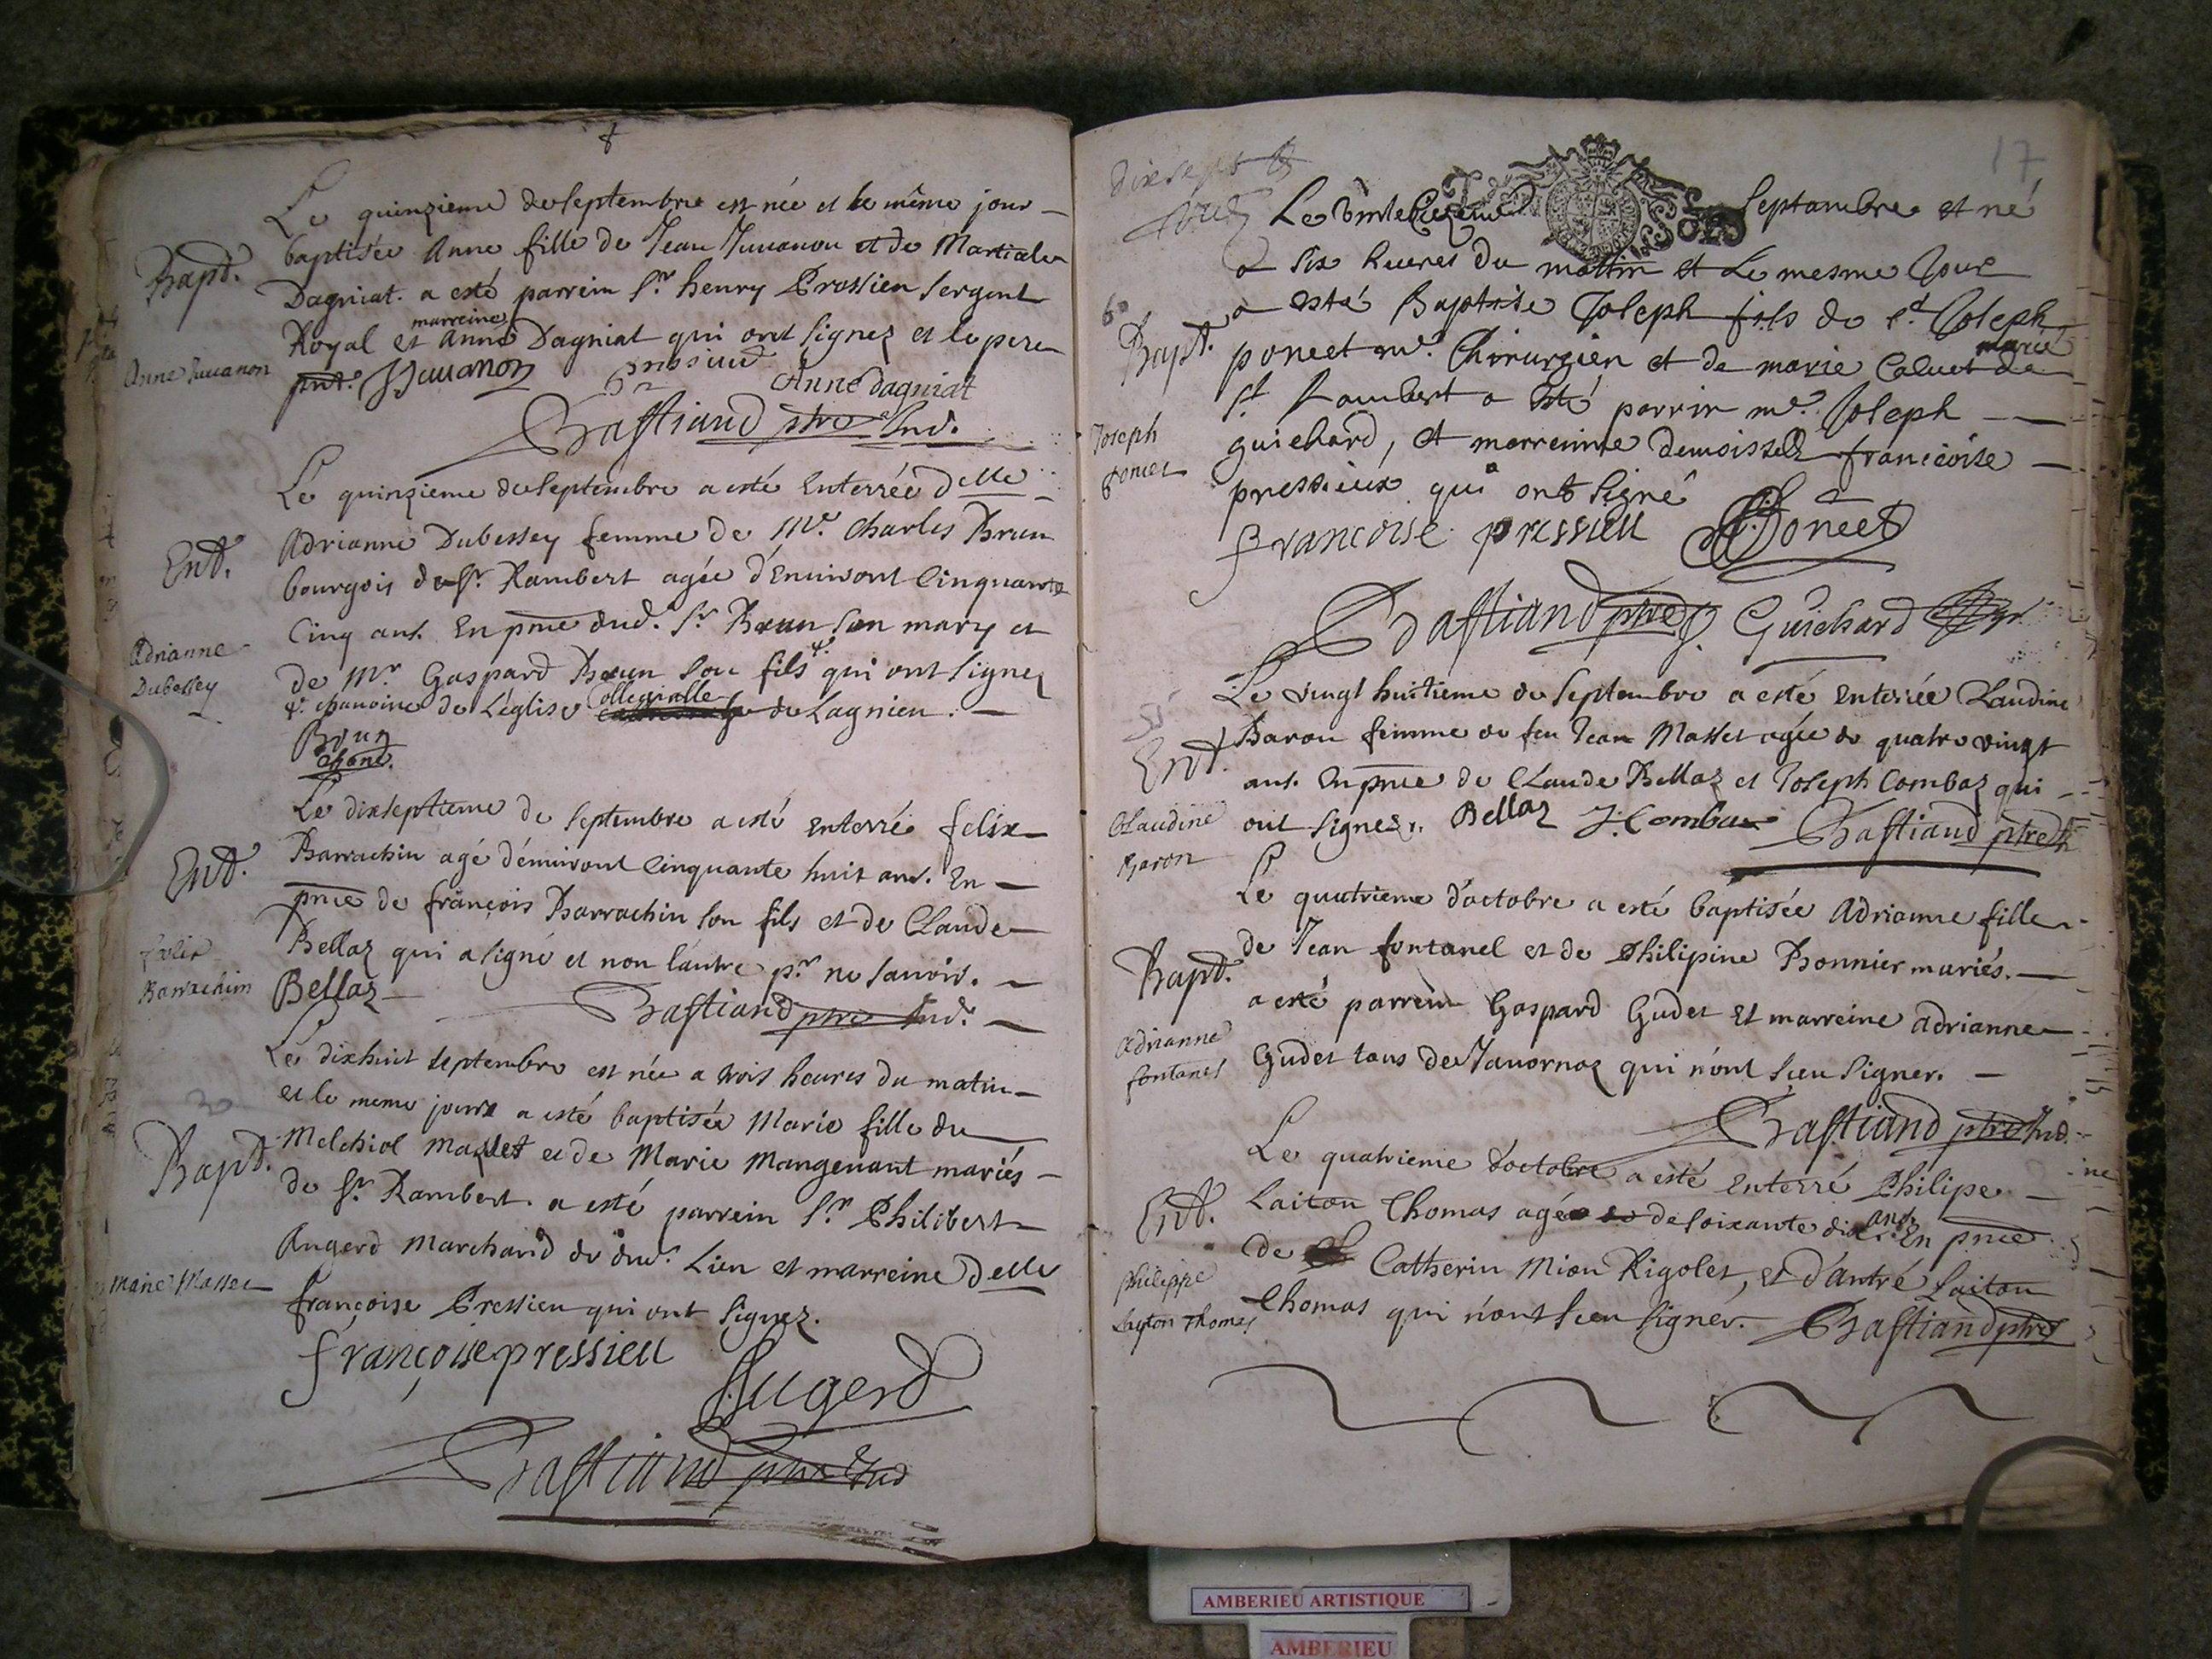 Le quinzieme de Septembre est née et le même jour
Bapt.
baptisée Anne fille de Jean Juuanon et de Martiale
Dagniat. a esté parrein Sr. henry Prossieu sergent
Royal et marreine Anne Dagniat qui ont signez et le pere
Anne Juuanon
pnt. Juuanon
Anne dagniat
Bastiand ptre Ind.
Le quinzieme de Septembre a esté Enterrée delle
Ent.
Adrianne Dubessey femme de Me. Charles Brun
bourgois de St. Rambert agée d'Enuiront Cinquante
Cinq ans. En pnce dud. Sr. Brun son mary et
Adrianne
Dubessey
de Mr. Gaspard Brun son fils qui ont signez
chanoine de L'église Collegialle de Lagnieu.
Brun
Chone.
Le dixseptieme de Septembre a esté enterré felix
Ent.
Barrachin agé d'énuiront Cinquante huit ans. En
pnce de françois Barrachin son fils et de Claude
felix
Barrachin
Bellaz qui a signé et non l'autre pr. ne sauoir.
Bellaz
Bastiand ptre Ind.
Le dixhuit septembre est née a trois heures du matin
et le meme jour a esté baptisée Marie fille du
Bapt.
Melchiol Masset et de Marie Mangenant mariés
de St. Rambert. a esté parrein Sr. Philibert
Augerd Marchand du dud. Lieu et marreine delle
Marie Masset
françoise Pressieu qui ont signez.
françoise pressieu
Augerd
Bastiand ptre Ind
17
dixsept
Le Septambre et né
a six heures du mattin et Le mesme Jour
6
a esté Baptise Joseph fils de Sr. Joseph
Bapt.
poncet me. Chirurgien et de marie Caluet marié de
St Rambert a esté parrin me. Joseph
Joseph
poncet
guichard, et marreinne demoiselle francoise
pressieux qui ont signé
francoise pressieu Poncet
Bastiand ptre Guichard
Le vingt huitieme de Septembre a esté enterrée Claudine
Ent.
Baron femme de feu Jean Masset agée de quatre vingt
ans. En pnce de Claude Bellaz et Joseph Combaz qui
Claudine
Baron
ont signez. Bellaz J. Combaz Bastiand ptre
Le quatrieme d'octobre a esté baptisée Adrianne fille
Bapt.
de Jean fontanel et de Philipine Bonnier mariés.
a esté parrein Gaspard Gudet et marreine adrianne
Adrianne
fontanel
Gudet tous de Jauornoz qui n'ont sceu signer.
Bastiand ptre Ind.
Le quatrieme d'octobre a esté enterré Philipe
Ent.
Laiton Thomas agé de soixante dix ans. En pnce
de Catherin Mion Rigolet, et d'antré Laiton
philippe
Layton Thomas
Thomas qui n'ont sceu signer. Bastiand ptre
AMBERIEU ARTISTIQUE
AMBERIEU